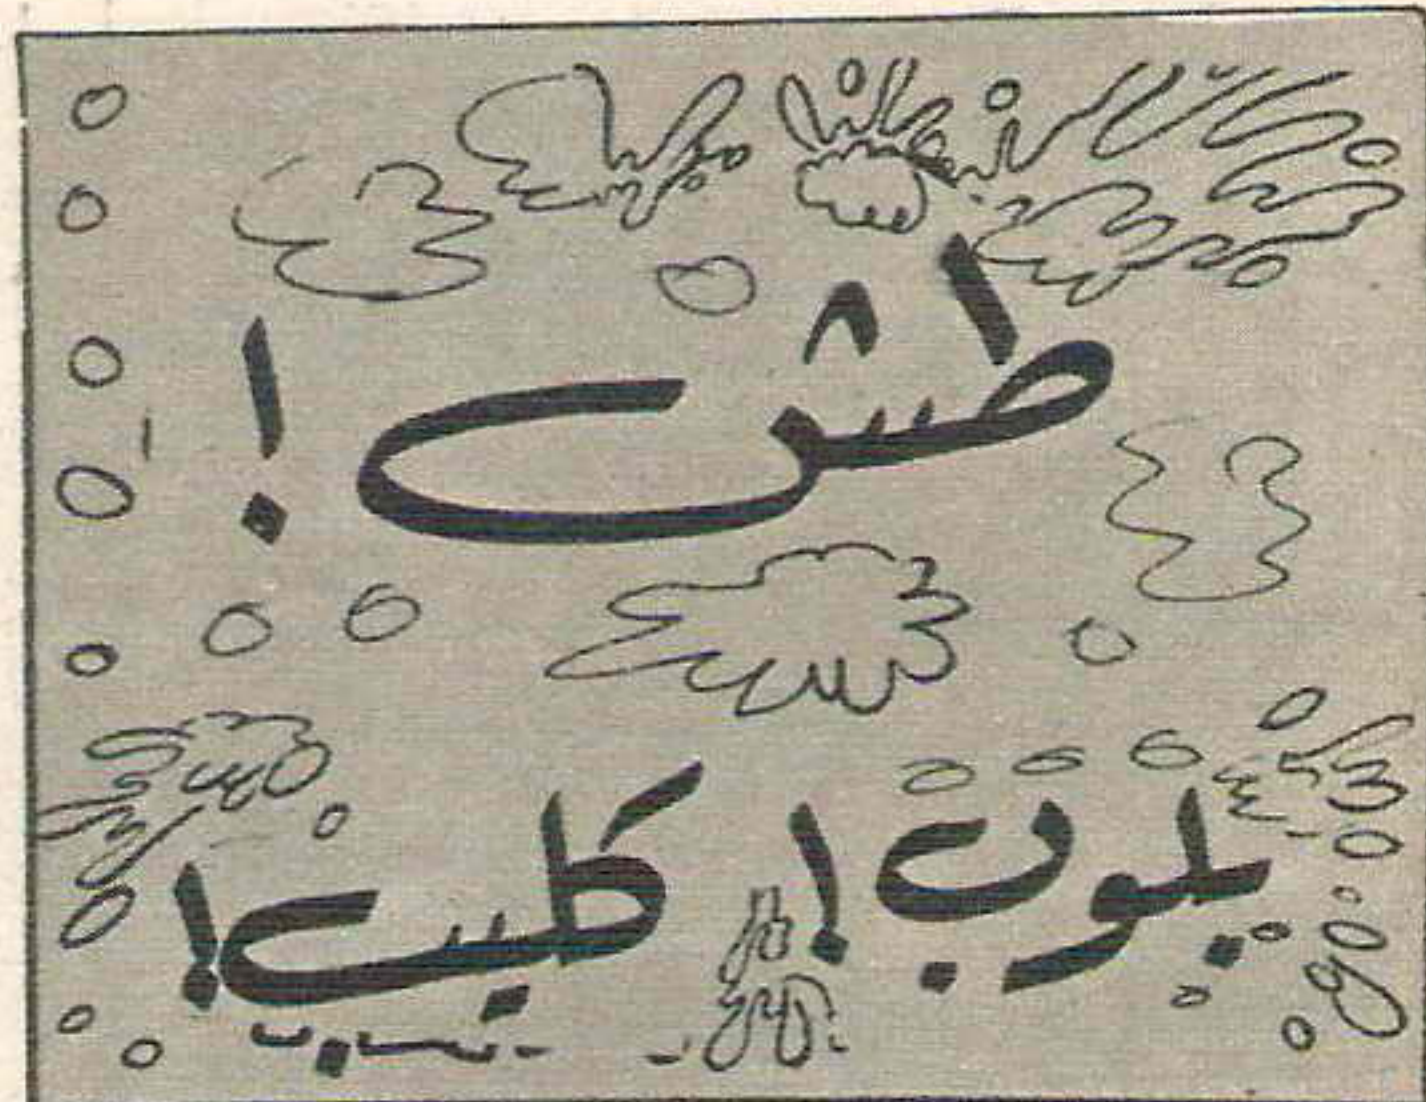 طش !
بلوب ! كليب !